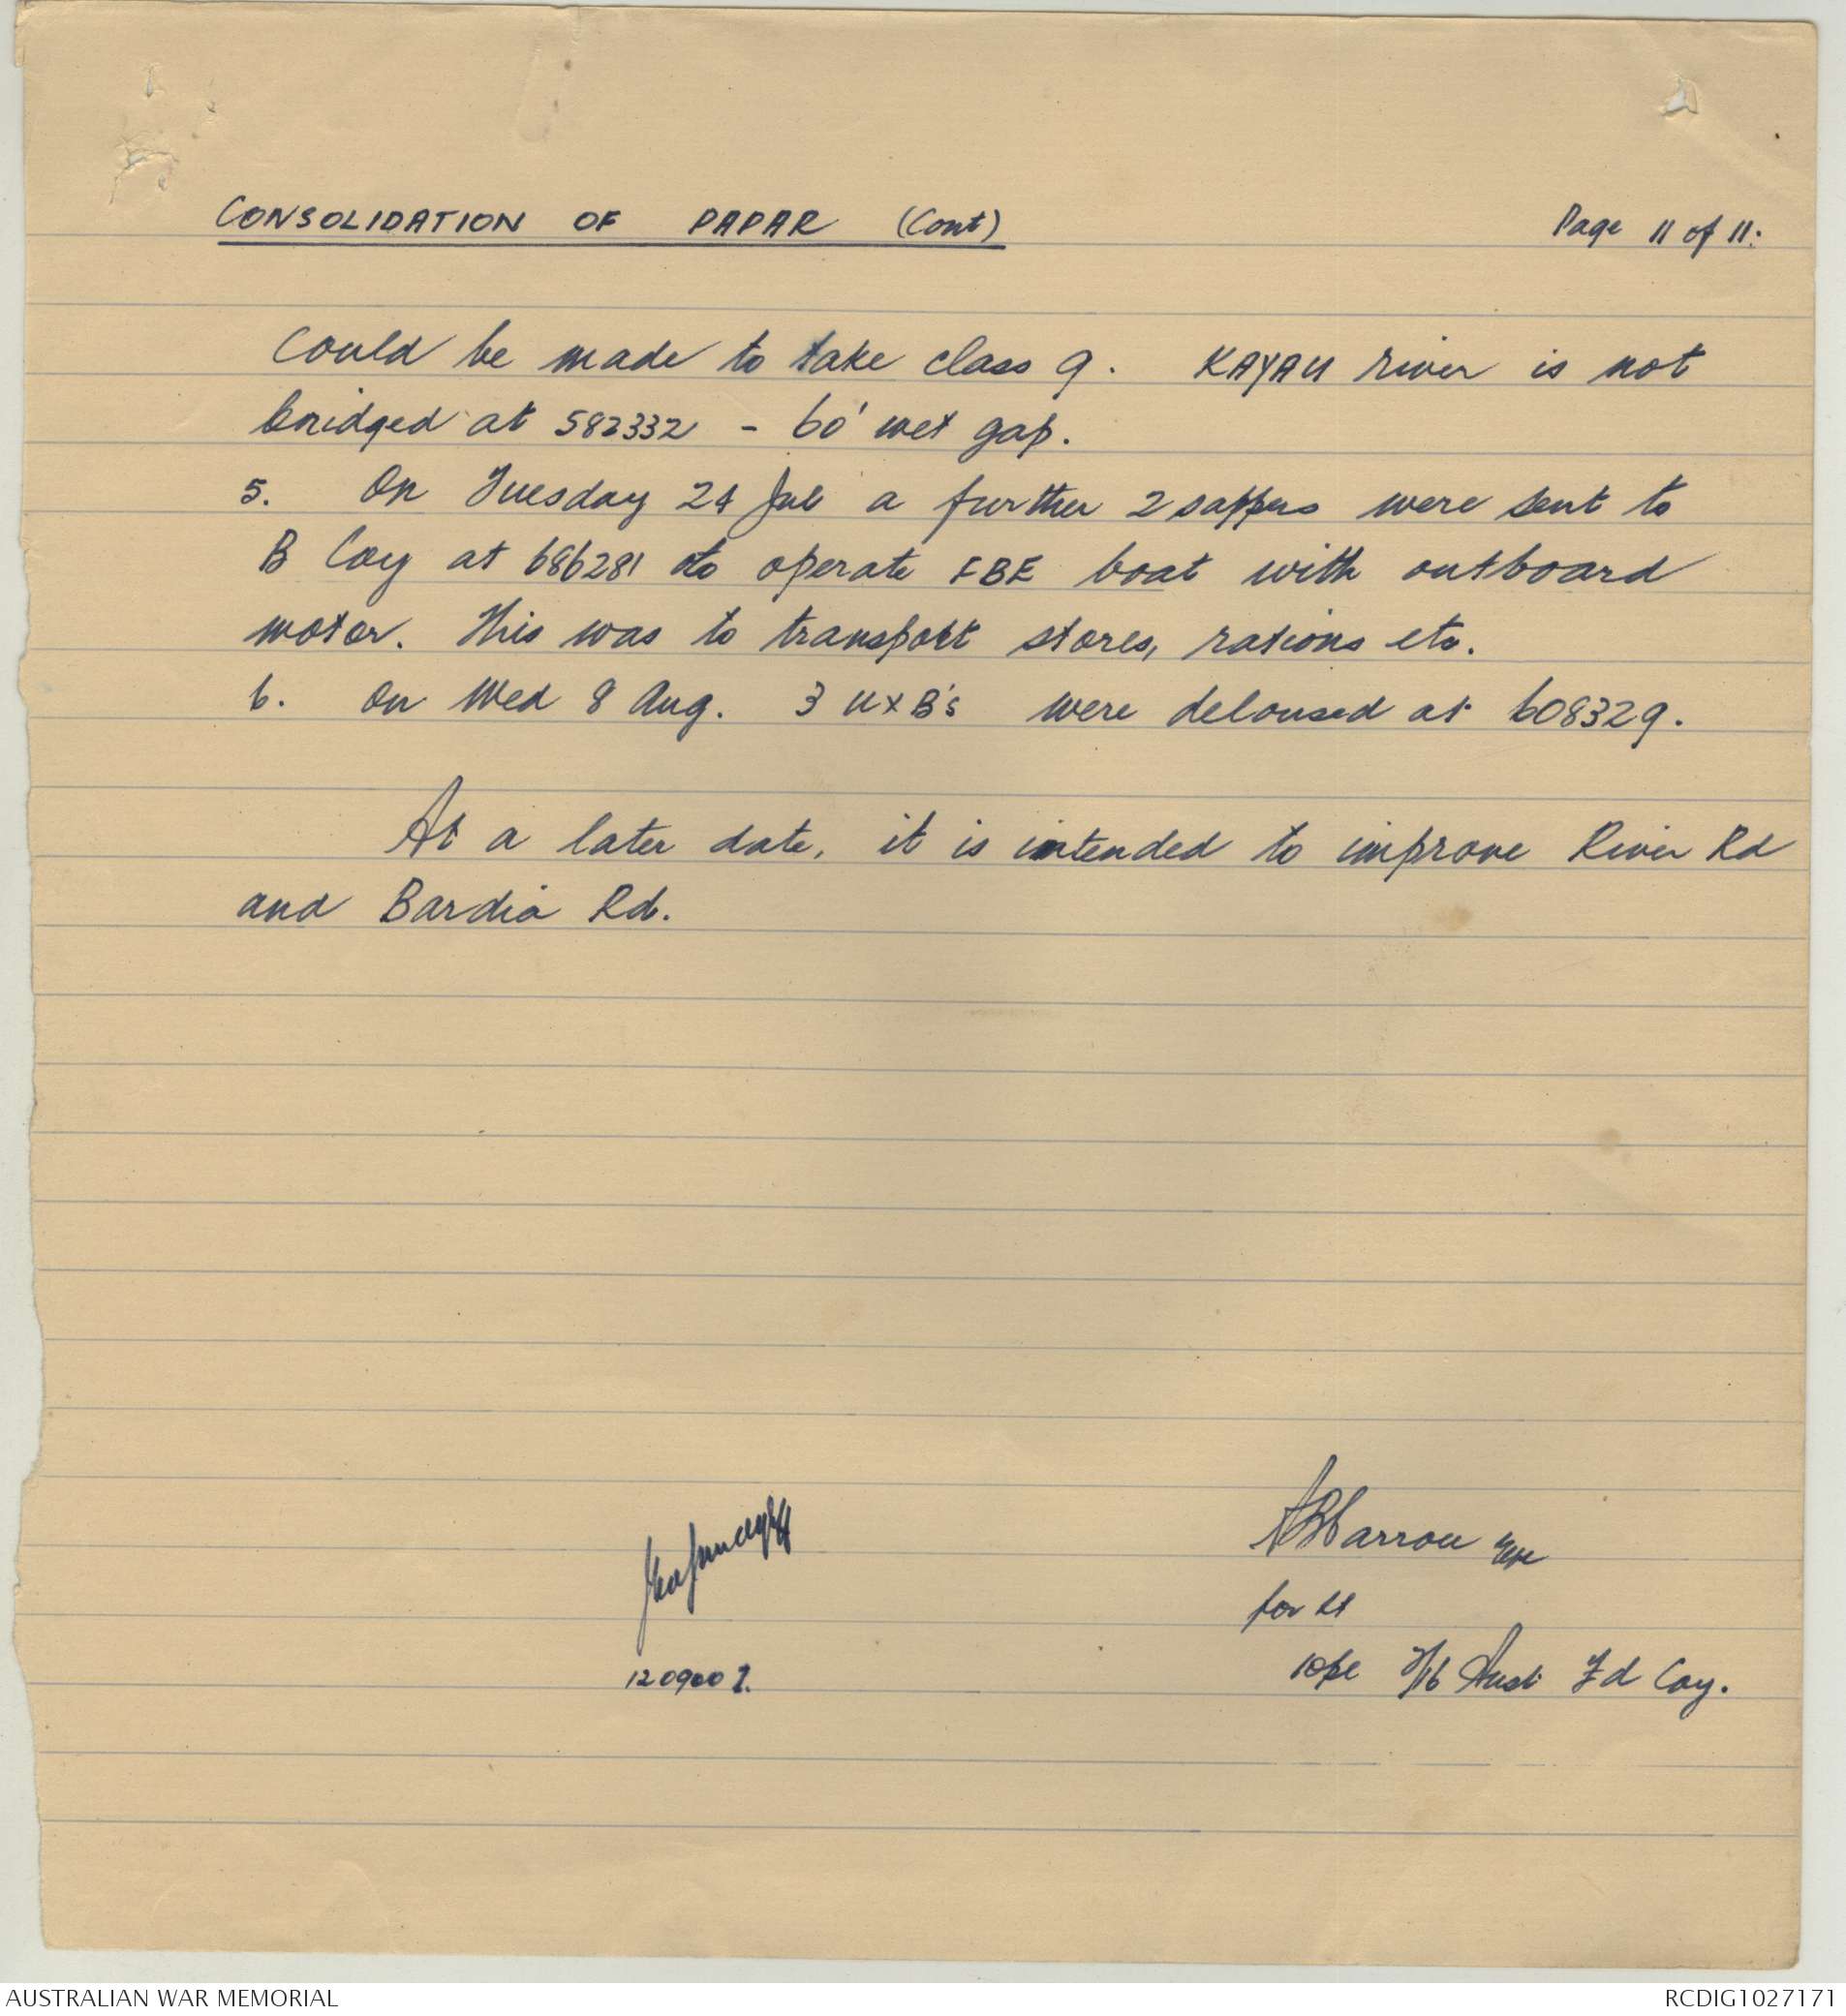 CONSOLIDATION OF PAPAR (Cont)
Page 11 of 11.
Could be made to take class 9. KAYAU river is not
bridged at 582332 - 60' wet gap.
5. On Tuesday 24 Jul a further 2 sappers were sent to
B Coy at 686281 to operate FBE boat with outboard
motor. This was to transport stores, rations etc.
6. On Wed 8 Aug. 3 UXB's were deloused at 608329.
At a later date, it is intended to improve River Rd
and Bardia Rd.
for Lt
120900Z.
10pl 2/16 Aust Fd Coy.
AUSTRALIAN WAR MEMORIAL
RCDIG1027171